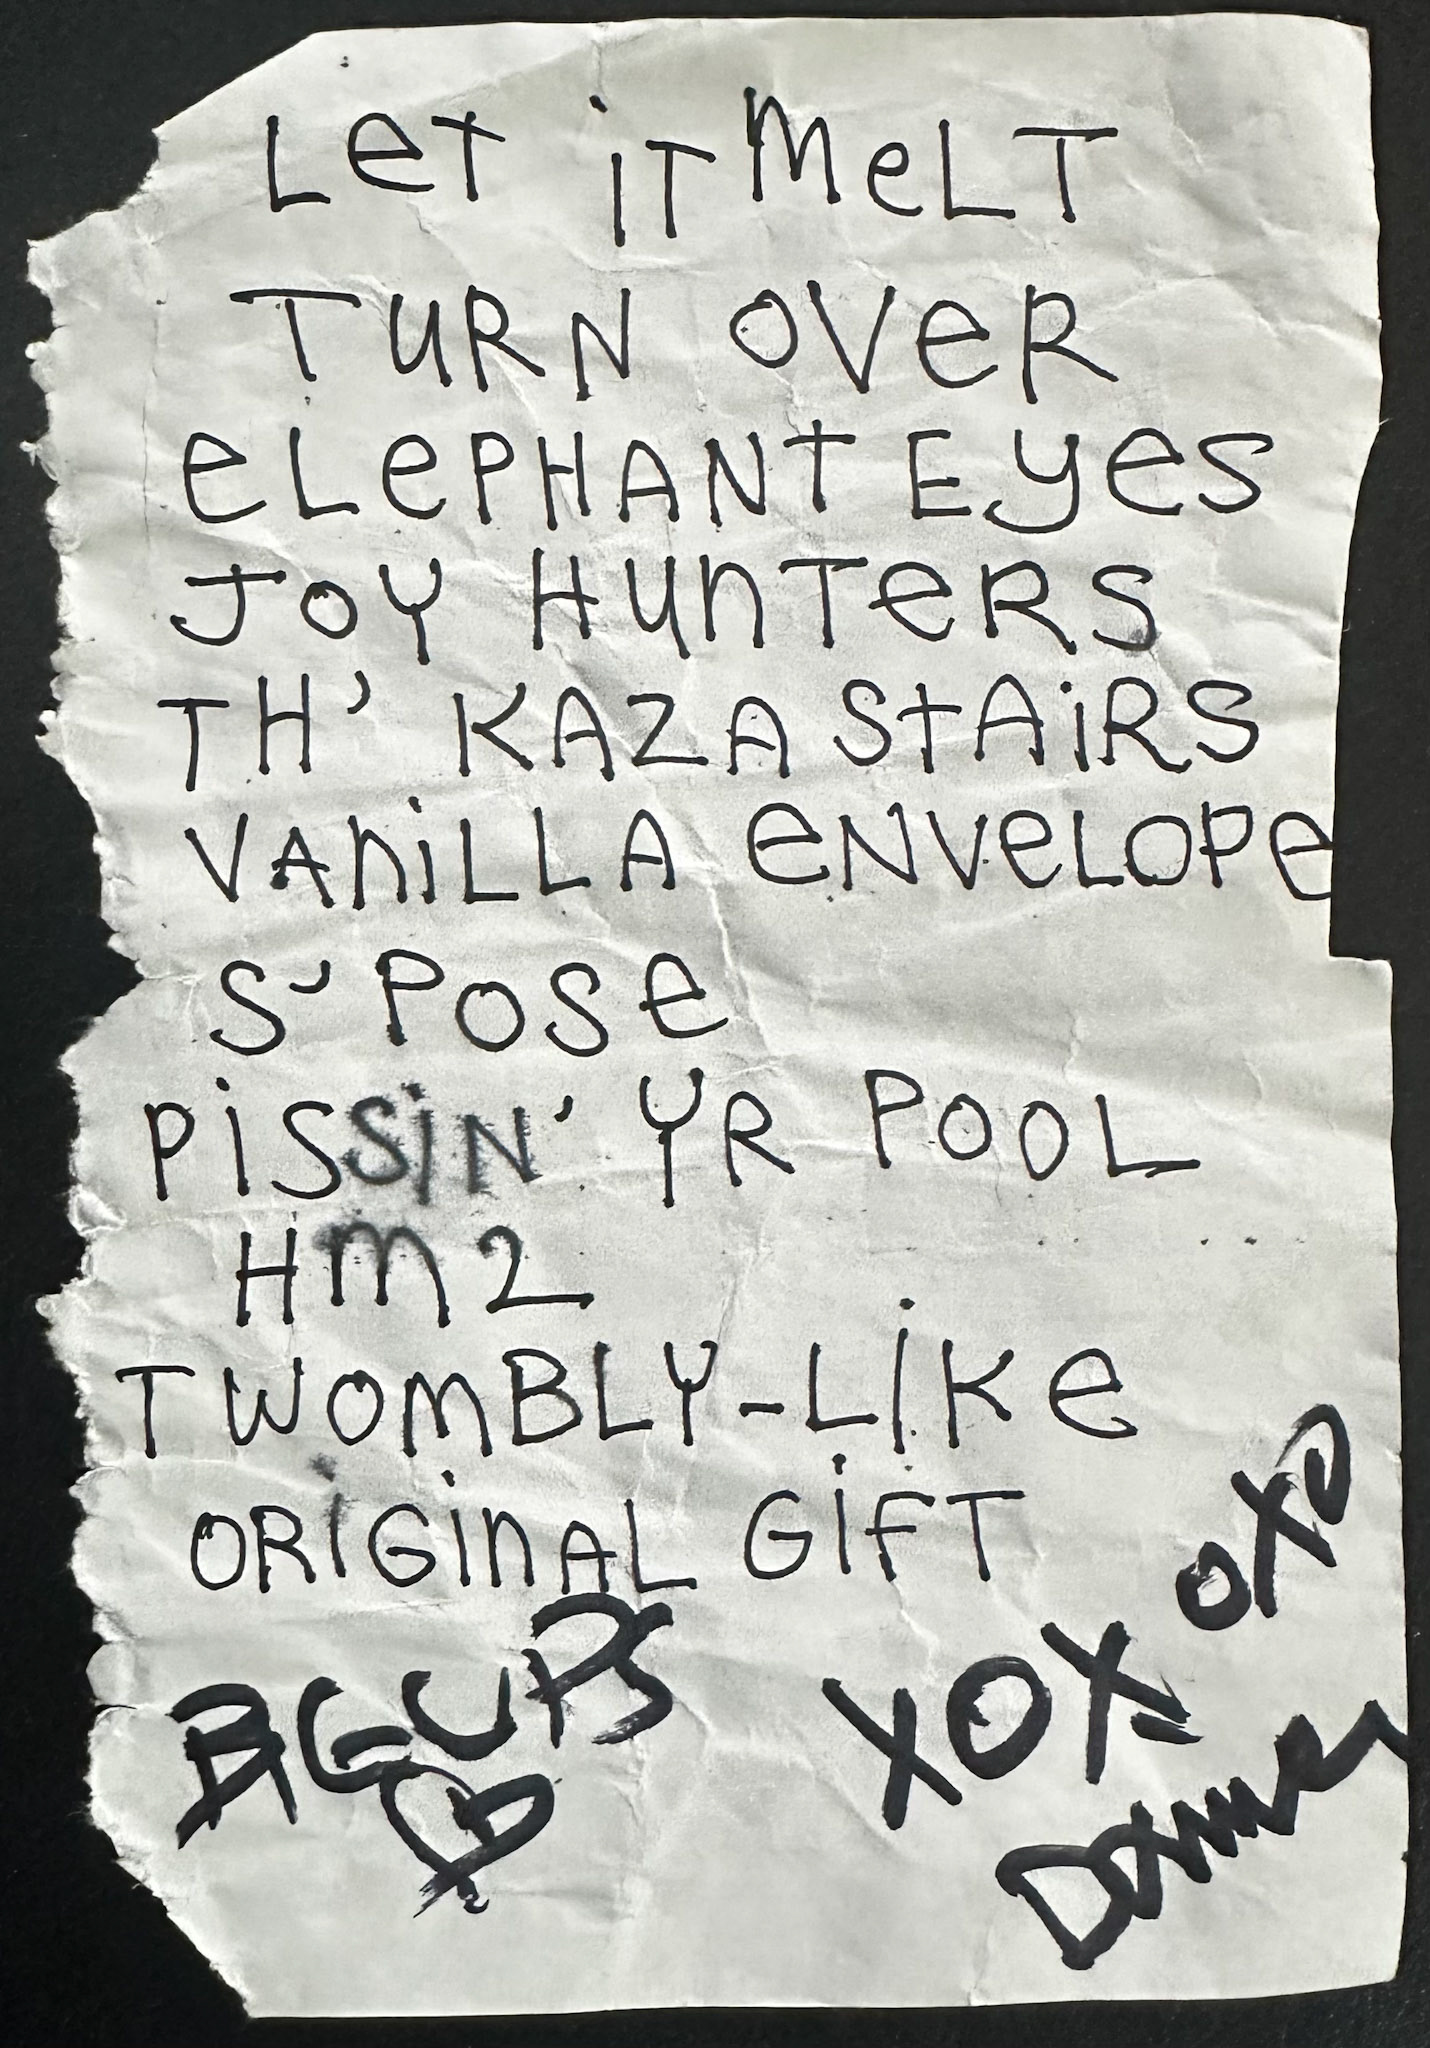 LeT iT MeLT
TuRN OVeR
eLePHANT Eyes
JOY HunTeRS
TH' KAZA StAiRS
VAniLLA eNVeLOPe
S'POSe
PiSSiN' YR POOL
Hm2
TWOmBLY-LiKe
ORiGinAL GiFT
BIG UPS
XOX OXO